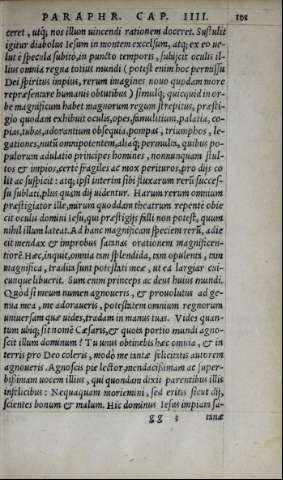 PARAPHR. CAP. IIII.
ceret, utq; nos illum uincendi rationem doceret. Sustulit
igitur diabolus Iesum in montem excelsum, atq; ex eo ue-
lut è specula subitò, in puncto temporis, subijcit oculi il-
lius omnia regna totius mundi (potest enim hoc permissu
Dei spiritus impius, rerum imagines nouo quodam more
repræsentare humanis obtutibus) simulq; quicquid in or-
be magnificum habet magnorum regum strepitus, præsti-
gio quodam exhibuit oculis, opes, famulitium, palatia, co-
pias, tubas, adorantium obsequia, pompas, triumphos, le-
gationes, nutũ omnipotentem, aliaq́; permulta, quibus po-
pulorum adulatio principes homines, nonnunquam stul-
tos & impios, certè fragiles ac mox perituros, pro dijs co
lit ac suspicit: atq; ipsi interim sibi fluxarum rerũ succes-
su sublati, plus quàm dij uidentur. Harum rerum omnium
præstigiator ille, mirum quoddam theatrum repente obie
cit oculis domini Iesu, qui præstigijs falli non potest, quum
nihil illum lateat. Ad hanc magnificam speciem rerũ, adie
cit mendax & improbus satanas orationem magnificen-
tiorẽ. Hæc, inquit, omnia tam splendida, tam opulenta, tam
magnifica, tradita sunt potestati meæ, ut ea largiar cui-
cunque libuerit. Sum enim princeps ac deus huius mundi.
Quòd si me cum numen agnoueris, & prouolutus ad ge-
nua mea, me adoraueris, potestatem omnium regnorum
uniuersam quæ uides, tradam in manus tuas. Vides quan-
tum ubiq; sit nomẽ Cæsaris, & quota portio mundi agno-
scit illum dominum? Tu unus obtinebis hæc omnia, & in
terris pro Deo coleris, modò me tantæ felicitatis autorem
agnoueris. Agnoscis pie lector, mendacissimam ac super-
bissimam uocem illius, qui quondam dixit parentibus illis
infelicibus: Nequaquam moriemini, sed eritis sicut dij,
scientes bonum & malum. Hic dominus Iesus impiam sa-
gg 3 tanæ